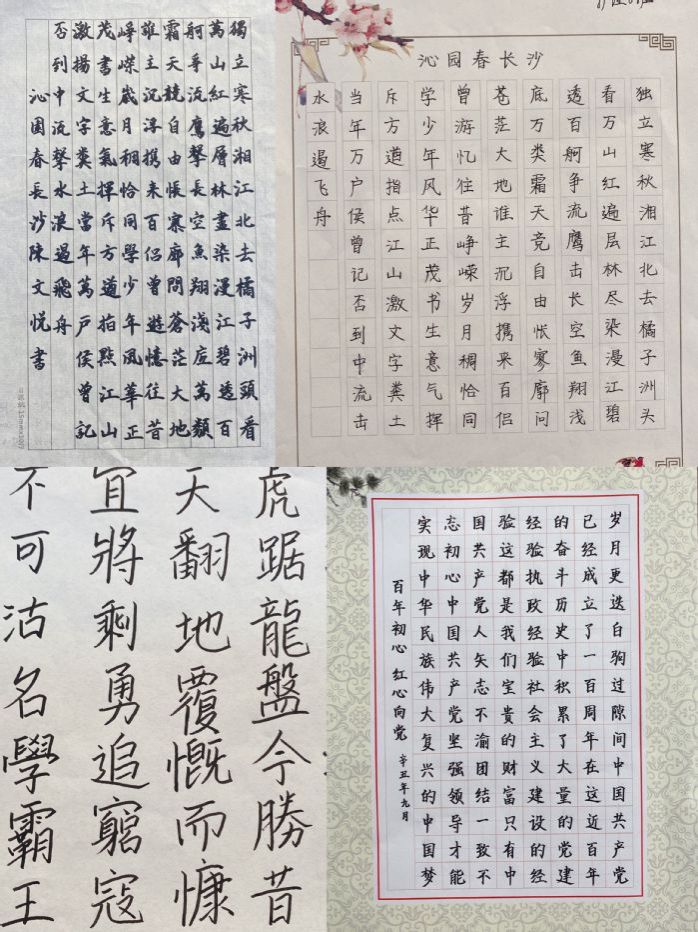 獨立寒秋湘江北去橘子洲頭看
萬山紅遍層林盡染漫江碧透百
舸爭流鷹擊長空魚翔淺底萬類
霜天競自由悵寥廓問蒼茫大地
誰主沉浮携來百侶曾遊憶往昔
崢嶸歲月稠恰同學少年風華正
茂書生意氣揮斥方遒指點江山
激揚文字糞土當年萬戶侯曾記
否到中流擊水浪遏飛舟
沁园春長沙陳文悦書
沁园春长沙
独立寒秋湘江北去橘子洲头
看万山红遍层林尽染漫江碧
透百舸争流鹰击长空鱼翔浅
底万类霜天竞自由怅寥廓问
苍茫大地谁主沉浮携来百侣
曾游忆往昔峥嵘岁月稠恰同
学少年风华正茂书生意气挥
斥方遒指点江山激文字粪土
当年万户侯曾记否到中流击
水浪遏飞舟
虎踞龍盤今勝昔
天翻地覆慨而慷
宜將剩勇追窮寇
不可沽名學霸王
岁月更迭白驹过隙间中国共产党
已经成立了一百周年在这近百年
的奋斗历史中积累了大量的党建
经验执政经验社会主义建设的经
验这都是我们宝贵的财富只有中
国共产党人矢志不渝团结一致不
忘初心中国共产党坚强领导才能
实现中华民族伟大复兴的中国梦
百年初心 红心向党 辛丑年九月